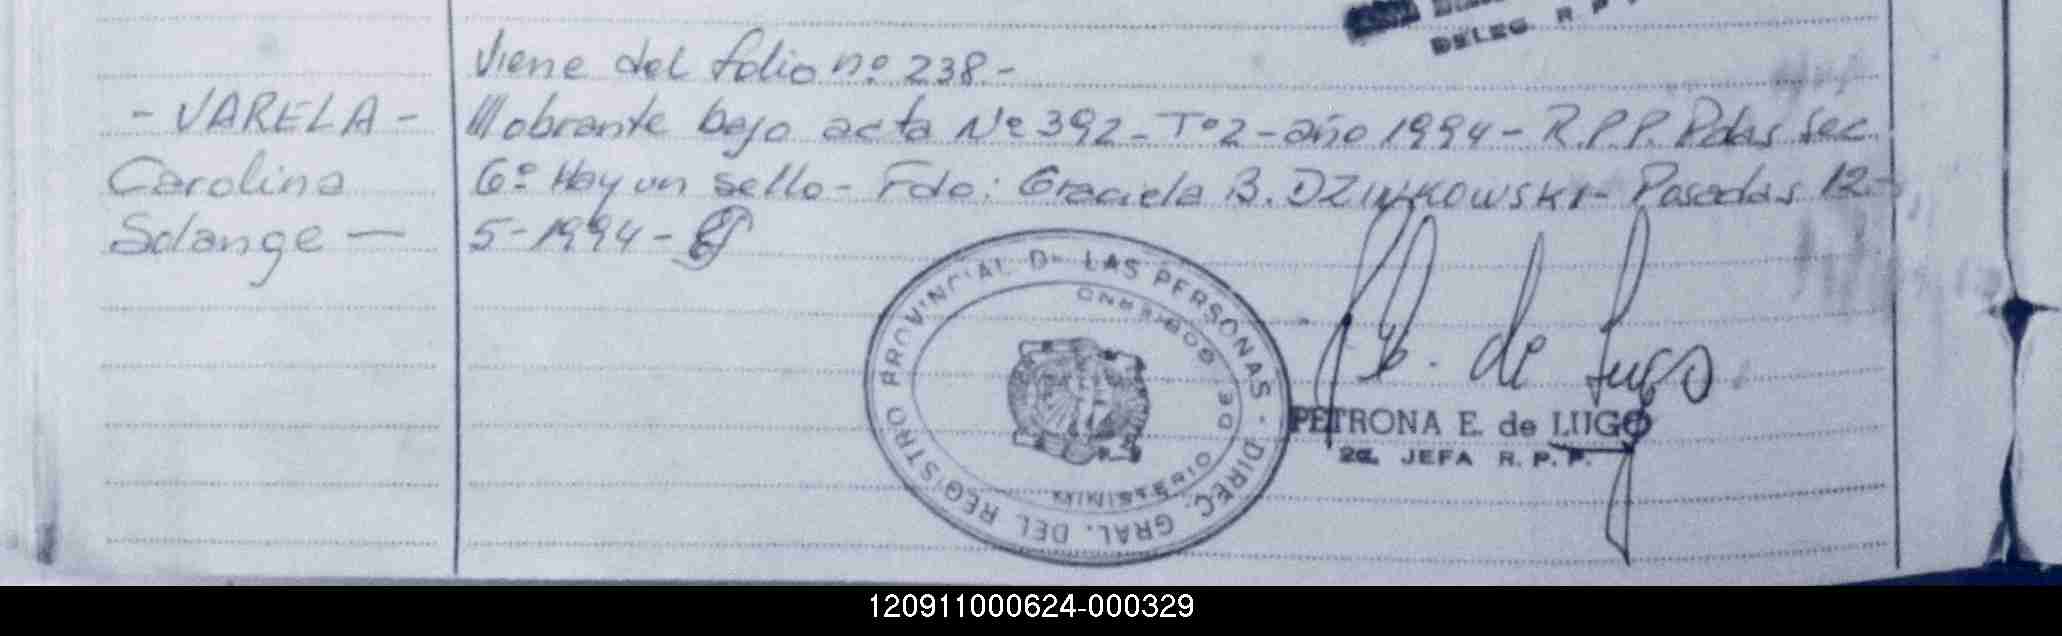 DELEG. R. P.
Viene del folio nº 238.-
- VARELA -
Carolina
Solange —
/// obrante bajo acta Nº 392 - Tº 2 - año 1994 - R.P.P. Pdas Sec.
6º Hay un sello - Fdo: Graciela B. DZINKOWSKI - Posadas 12-
5-1994 -
REGISTRO PROVINCIAL DE LAS PERSONAS · DIREC. GRAL. DEL
MINISTERIO DE GOBIERNO
de Lugo
PETRONA E. de LUGO
2a. JEFA R. P. P.
120911000624-000329